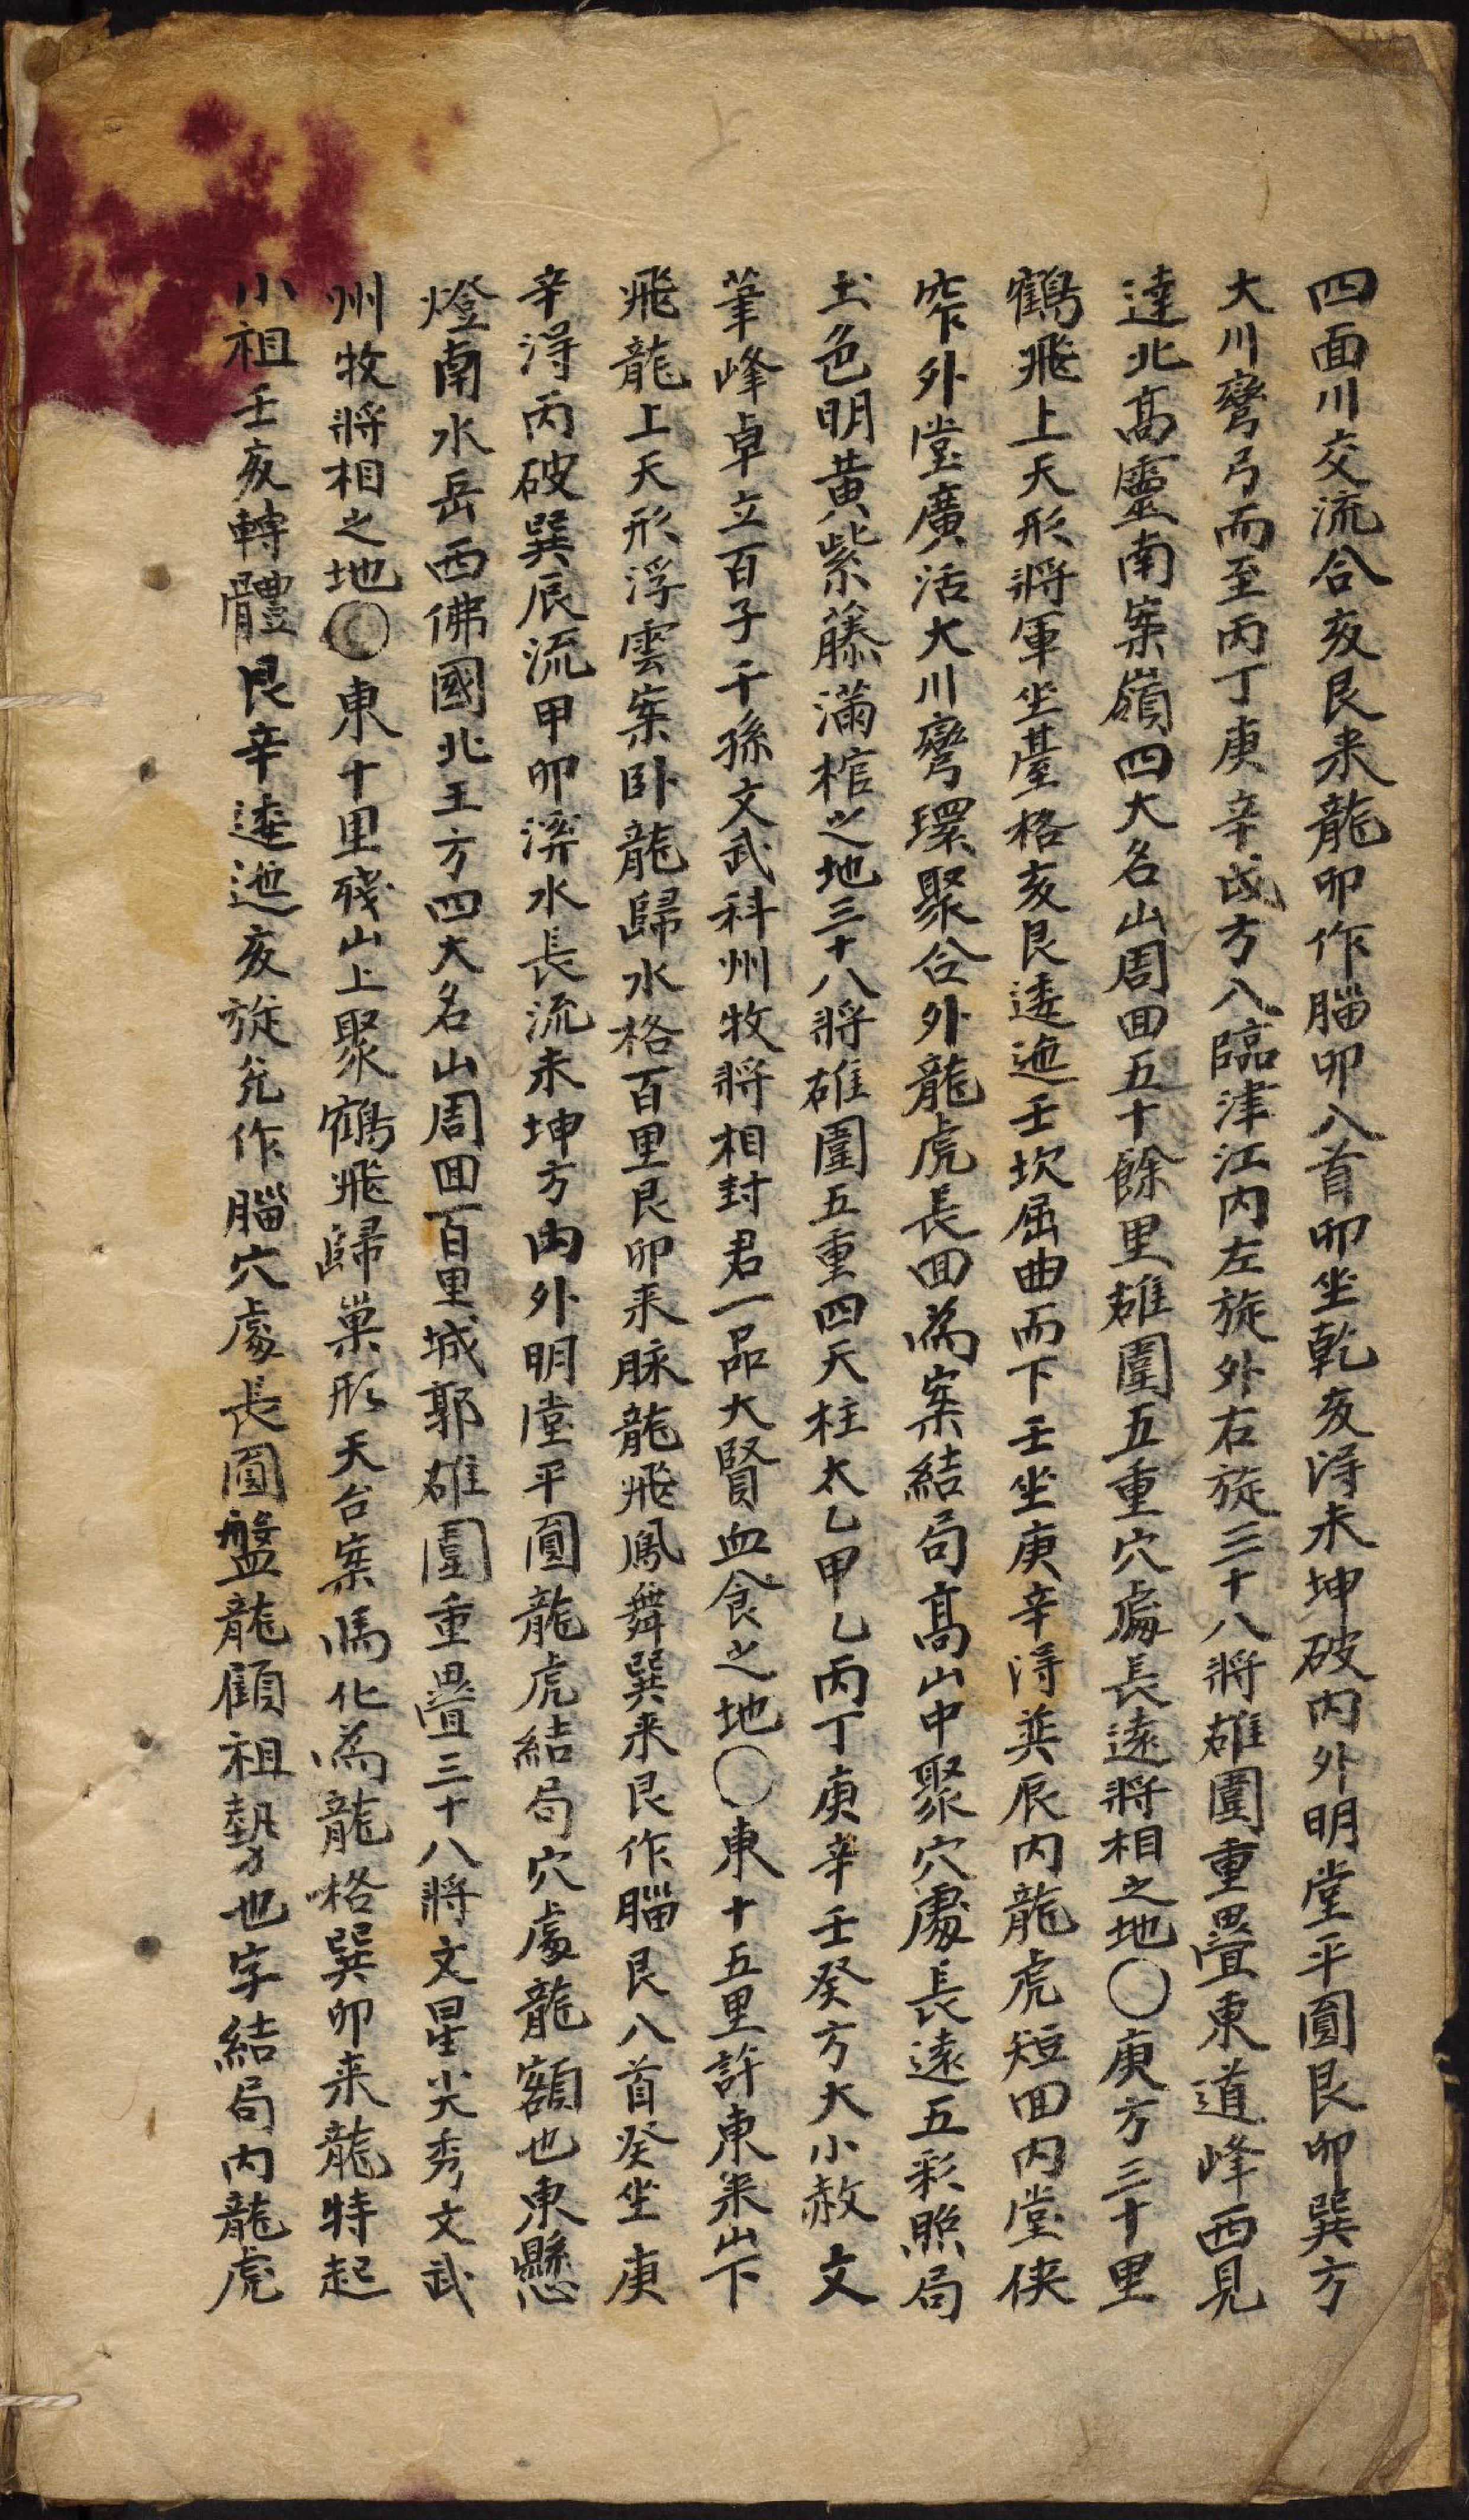 四面川交流合亥艮来龍卯作腦卯入首卯坐乾亥淂未坤破内外明堂平圓艮卯巽方
大川弯弓而至丙丁庚辛戌方入臨津江内左旋外右旋三十八將雄圍重疊東道峰西見
逹北髙靈南案嶺四大名山周回五十餘里雄圍五重穴處長遠將相之地〇庚方三十里
鶴飛上天形將軍坐臺格亥艮逶迤壬坎屈曲而下壬坐庚辛淂巽辰内龍虎短回内堂狹
窄外堂廣活大川弯環聚合外龍虎長回為案結局髙山中聚穴處長遠五彩照局
土色明黄紫藤滿棺之地三十八將雄圍五重四天柱太乙甲乙丙丁庚辛壬癸方大小赦文
筆峰卓立百子千孫文武科州牧將相封君一品大賢血食之地〇東十五里許東案山下
飛龍上天形浮雲案卧龍歸水格百里艮卯来脉龍飛鳳舞巽来艮作腦艮入首癸坐庚
辛淂丙破巽辰流甲卯濟水長流未坤方内外明堂平圓龍虎結局穴處龍額也東懸
燈南水岳西佛國北王方四大名山周回百里城郭雄圍重疊三十八將文星尖秀文武
州牧將相之地〇東十里殘山上聚鶴飛歸巢形天台案馬化為龍格巽卯来龍特起
小祖壬亥轉體艮辛逶迤亥旋兊作腦穴處長圓盤龍顧祖勢也字結局内龍虎